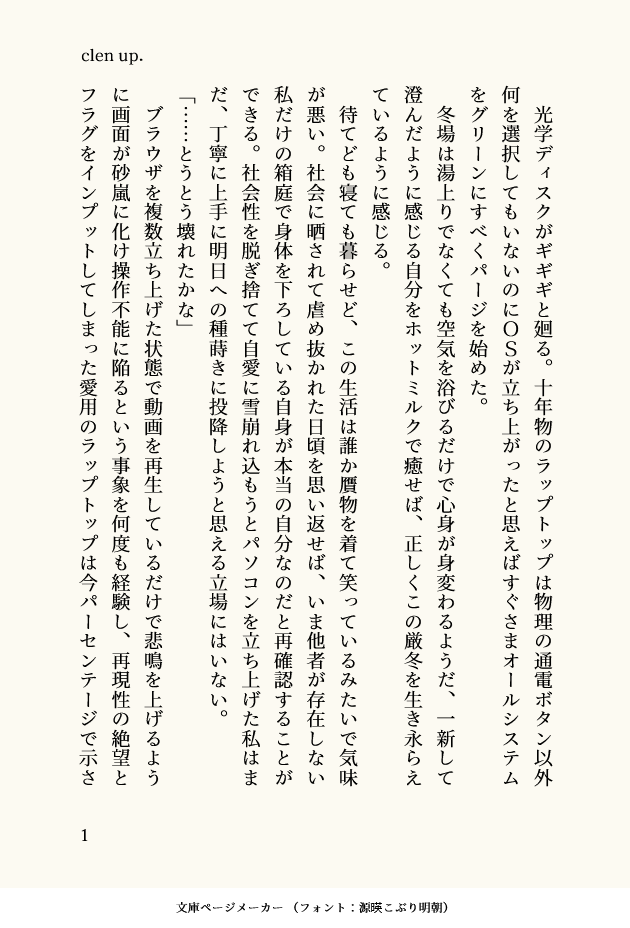 clen up.
光学ディスクがギギギと廻る。十年物のラップトップは物理の通電ボタン以外
何を選択してもいないのにＯＳが立ち上がったと思えばすぐさまオールシステム
をグリーンにすべくパージを始めた。
冬場は湯上りでなくても空気を浴びるだけで心身が身変わるようだ、一新して
澄んだように感じる自分をホットミルクで癒せば、正しくこの厳冬を生き永らえ
ているように感じる。
待てども寝ても暮らせど、この生活は誰か贋物を着て笑っているみたいで気味
が悪い。社会に晒されて虐め抜かれた日頃を思い返せば、いま他者が存在しない
私だけの箱庭で身体を下ろしている自身が本当の自分なのだと再確認することが
できる。社会性を脱ぎ捨てて自愛に雪崩れ込もうとパソコンを立ち上げた私はま
だ、丁寧に上手に明日への種蒔きに投降しようと思える立場にはいない。
「……とうとう壊れたかな」
ブラウザを複数立ち上げた状態で動画を再生しているだけで悲鳴を上げるよう
に画面が砂嵐に化け操作不能に陥るという事象を何度も経験し、再現性の絶望と
フラグをインプットしてしまった愛用のラップトップは今パーセンテージで示さ
1
文庫ページメーカー（フォント：源暎こぶり明朝）